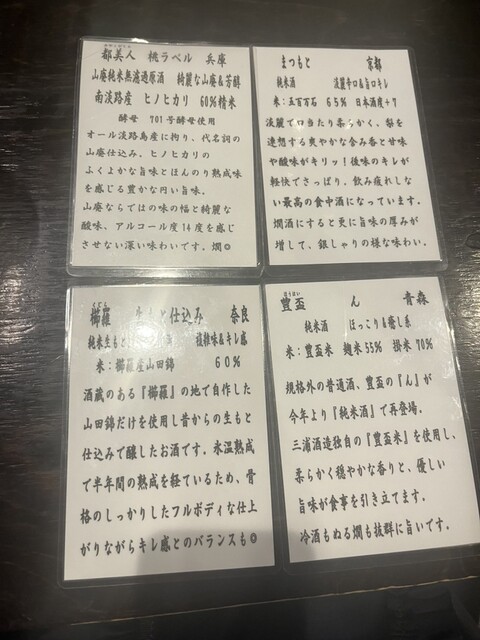 都美人 桃ラベル 兵庫
山廃純米無濾過原酒 綺麗な山廃&芳醇
南淡路産 ヒノヒカリ 60%精米
酵母 701号酵母使用
オール淡路島産に拘り、代名詞の
山廃仕込み。ヒノヒカリの
ふくよかな旨味とほんのり熟成味
を感じる豊かな円い旨味。
山廃ならではの味の幅と綺麗な
酸味、アルコール度14度を感じ
させない深い味わいです。燗◎
まつもと 京都
純米酒 淡麗辛口&旨口キレ
米:五百万石 65% 日本酒度+7
淡麗で口当たり柔らかく、梨を
連想する爽やかな含み香と甘味
や酸味がキリッ!後味のキレが
軽快でさっぱり。飲み疲れしな
い最高の食中酒になっています。
燗酒にすると更に旨味の厚みが
増して、銀しゃりの様な味わい。
櫛羅 生もと仕込み 奈良
純米生もと 複雑味&キレ感
米:櫛羅産山田錦 60%
酒蔵のある『櫛羅』の地で自作した
山田錦だけを使用し昔からの生もと
仕込みで醸したお酒です。氷温熟成
で半年間の熟成を経ているため、骨
格のしっかりしたフルボディな仕上
がりながらキレ感とのバランスも◎
ほうはい
豊盃 ん 青森
純米酒 ほっこり&癒し系
米:豊盃米 麹米55% 掛米70%
規格外の普通酒、豊盃の『ん』が
今年より『純米酒』で再登場。
三浦酒造独自の『豊盃米』を使用し、
柔らかく穏やかな香りと、優しい
旨味が食事を引き立てます。
冷酒もぬる燗も抜群に旨いです。